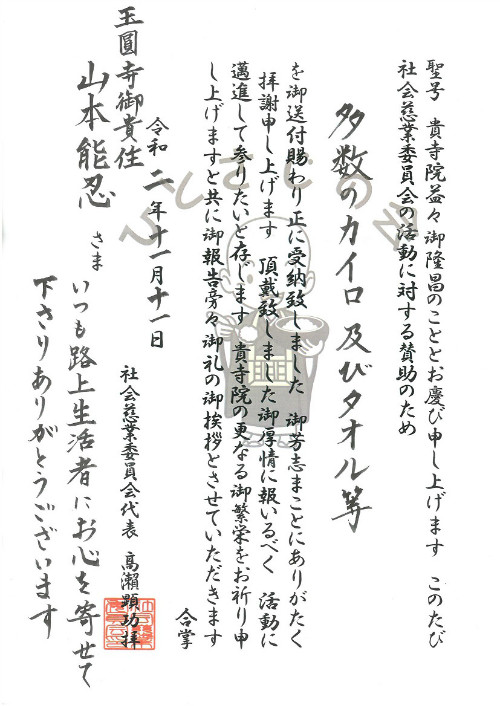 聖号 貴寺院益々御隆昌のこととお慶び申し上げます このたび
社会慈業委員会の活動に対する賛助のため
多数のカイロ及びタオル等
を御送付賜わり正に受納致しました 御芳志まことにありがたく
拝謝申し上げます 頂戴致しました御厚情に報いるべく 活動に
邁進して参りたいと存じます 貴寺院の更なる御繁栄をお祈り申
し上げますと共に御報告旁々御礼の御挨拶とさせていただきます
合掌
令和二年十一月十一日
社会慈業委員会代表 高瀬顕功拝
玉圓寺御貴住
山本能忍さま
いつも路上生活者にお心を寄せて
下さりありがとうございます
ひとさじの会